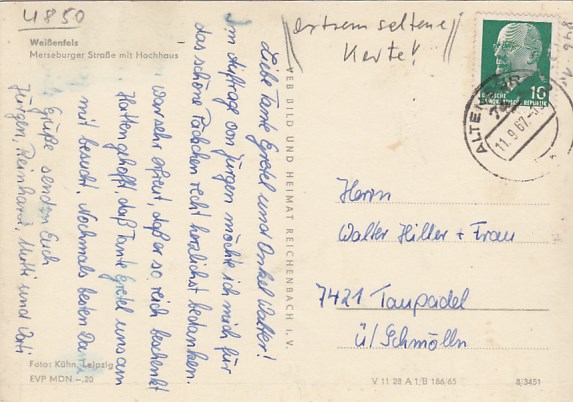 4850
Weißenfels
Merseburger Straße mit Hochhaus
extrem seltene
Karte!
Liebe Tante Gretel und Onkel Walter!
Im Auftrag von Jürgen möchte ich mich für
das schöne Päckchen recht herzlichst bedanken.
war sehr erfreut, daß er so reich beschenkt
Hatten gehofft, daß Tante Gretel uns am
mit besucht. Nochmals besten Dank
Grüße senden Euch
Jürgen, Reinhard, Mutti und Vati
Foto: Kühn, Leipzig
EVP MDN –,20
VEB BILD UND HEIMAT REICHENBACH I. V.
10
DEUTSCHE
DEMOKRATISCHE REPUBLIK
ALTENBURG
11.9.67
Herrn
Walter Hiller + Frau
7421 Taupadel
ü/Schmölln
V 11 28 A 1/B 186/65
8/3451